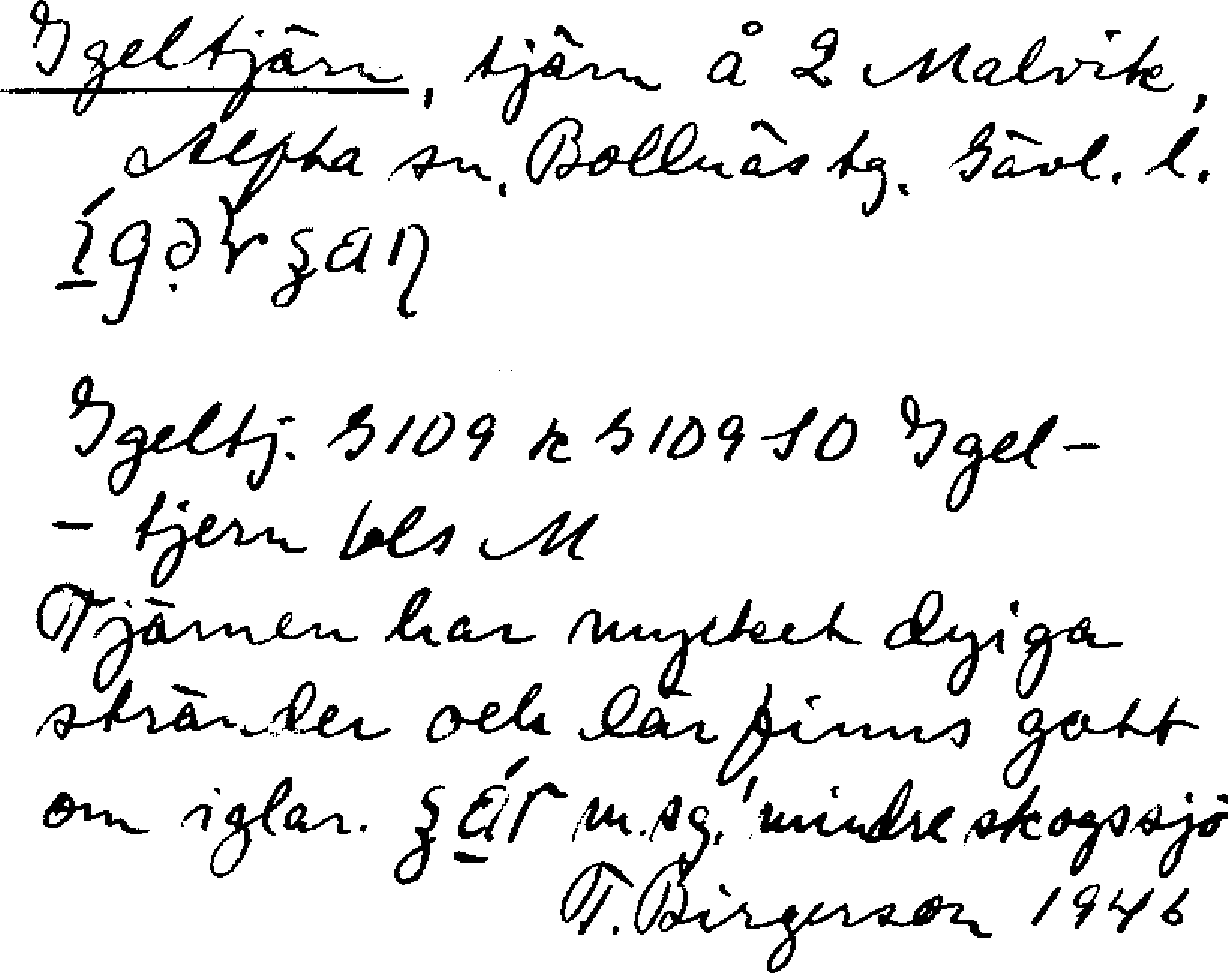 Igeltjärn, tjärn å 2 Malvik,
Alfta sn, Bollnäs tg. Gävl. l.
Igeltj. G109 k G109 SO Igel-
- tjern bls M
Tjärnen har mycket dyiga
stränder och där finns gott
om iglar. m.sg. 'mindre skogssjö
T. Birgerson 1946